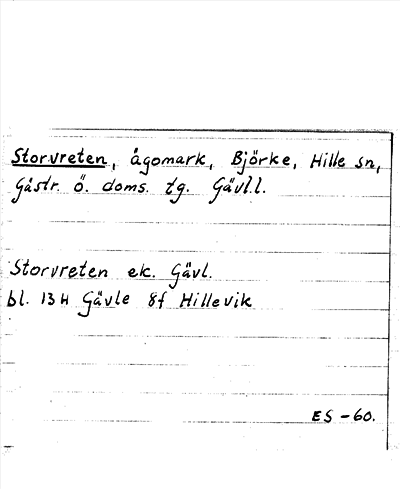 Storvreten, ägomark, Björke, Hille sn,
Gästr. Ö. doms. tg. Gävl.l.
Storvreten ek. Gävl.
bl. 13 H Gävle 8f Hillevik
ES -60.